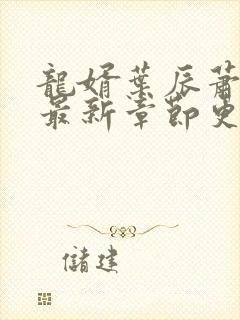 龍婿葉辰蕭
最新章節更
儲建